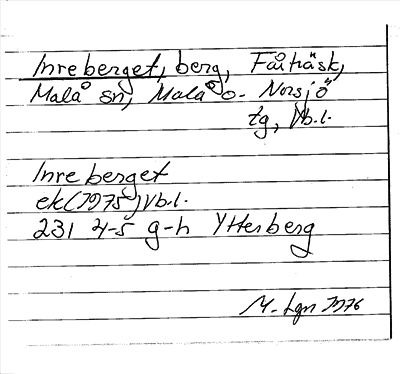 Inreberget, berg, Fårträsk,
Malå sn, Malå o- Norsjö
tg, Vb.l.
Inreberget
ek (1975) Vb.l.
231 4-5 g-h Ytterberg
M-Lgn 1976